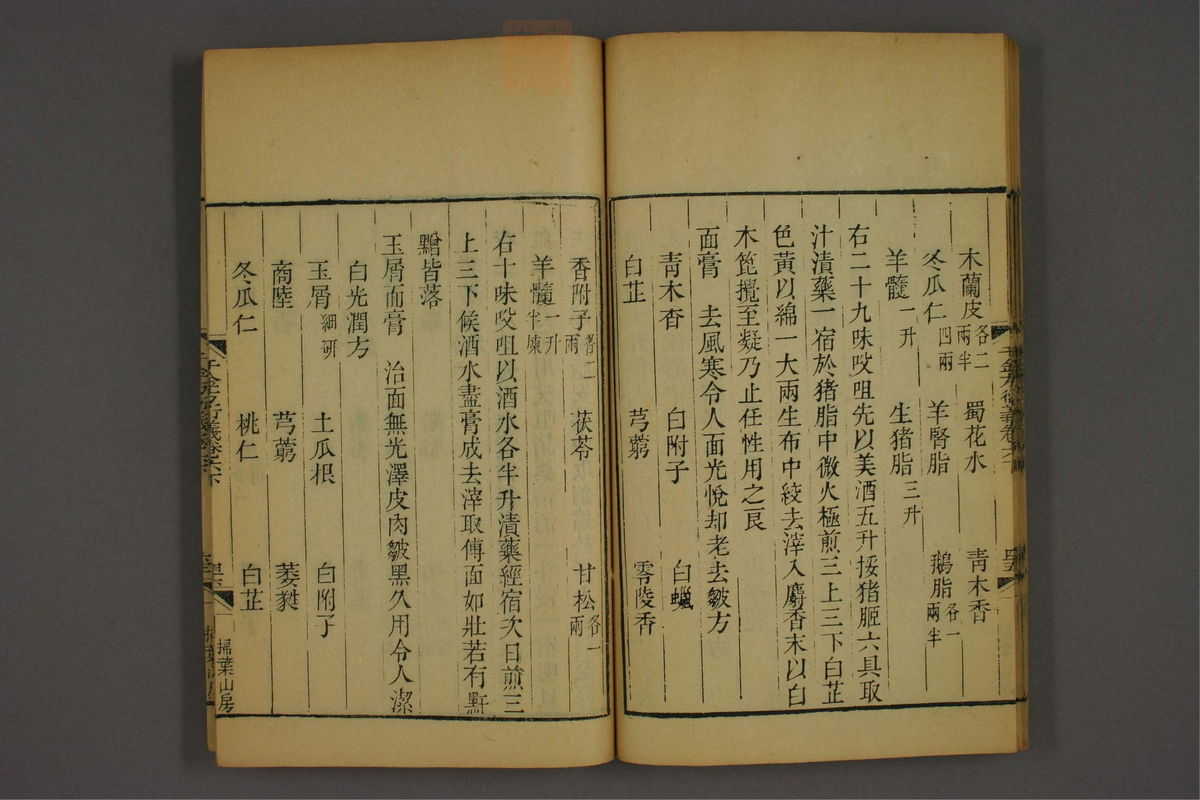 木蘭皮各二兩半　蜀花水　青木香
冬瓜仁四兩　羊腎脂　鵝脂各一兩半
羊髓一升　生猪脂三升
右二十九味㕮咀先以美酒五升挼猪胵六具取
汁漬藥一宿於猪脂中微火極煎三上三下白芷
色黃以綿一大兩生布中絞去滓入麝香末以白
木箆攪至凝乃止任性用之良
面膏　去風寒令人面光悅却老去皺方
青木香　白附子　白蠟
白芷　芎藭　零陵香
香附子各二兩　茯苓　甘松各一兩
羊髓一升半煉
右十味㕮咀以酒水各半升漬藥經宿次日煎三
上三下候酒水盡膏成去滓取傅面如壯若有䵟
䵳皆落
玉屑面膏　治面無光澤皮肉皺黑久用令人潔
白光潤方
玉屑細研　土瓜根　白附子
商陸　芎藭　萎蕤
冬瓜仁　桃仁　白芷
掃葉山房